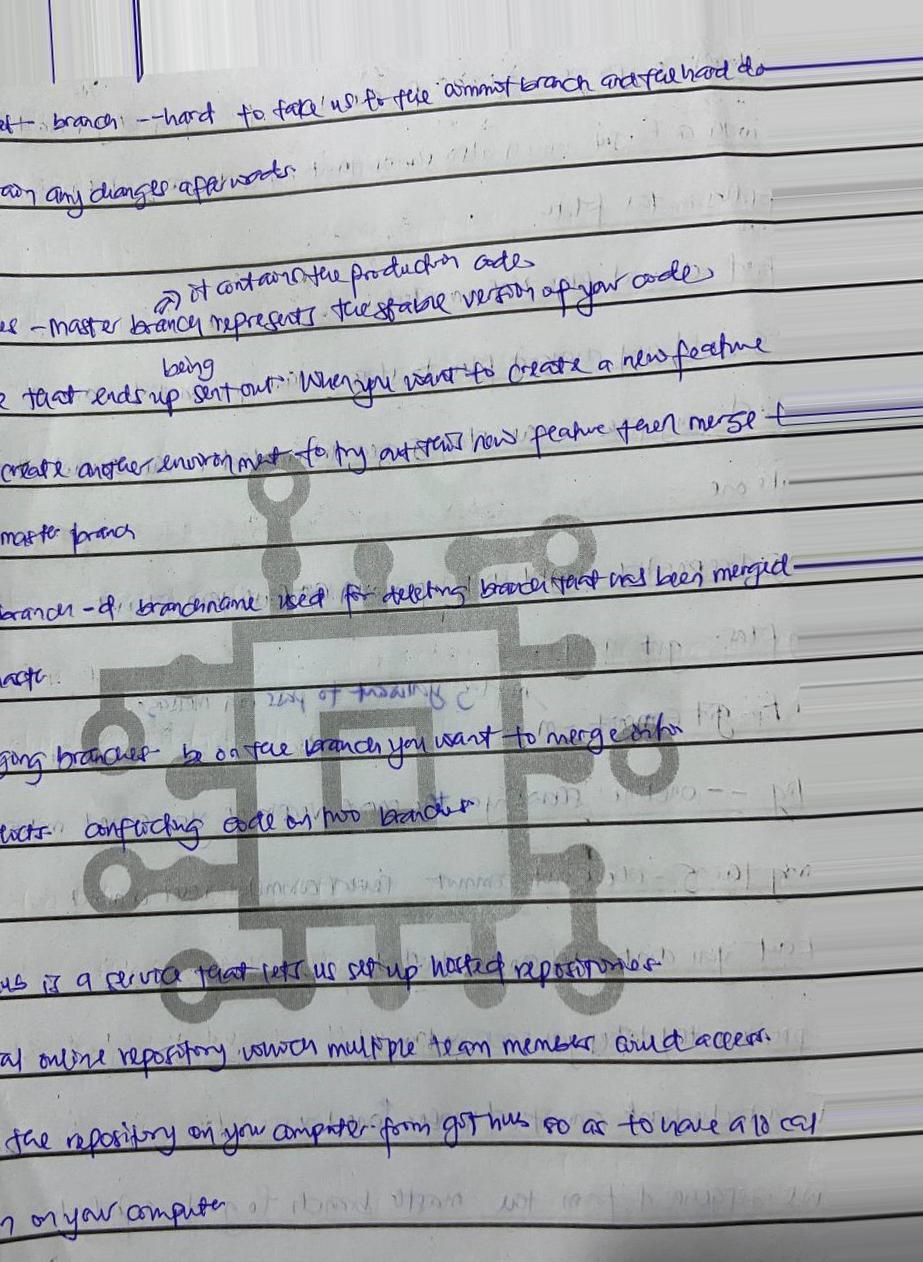 branch --hard to take us to the commit branch and the hard do
any changes afterwords.
it contains the production code
- master branch represents the stable version of your code,
being
that ends up sent out. When you want to create a new feature
create another environment to try out this new feature then merge t
master branch
branch -d branchname used for deleting branch that has been merged
branches be on the branch you want to merge onto
conflicting code on two branches
is a service that lets us set up hosted repositories
online repository which multiple team member could access.
the repository on your computer from gothub so as to have a local
on your computer